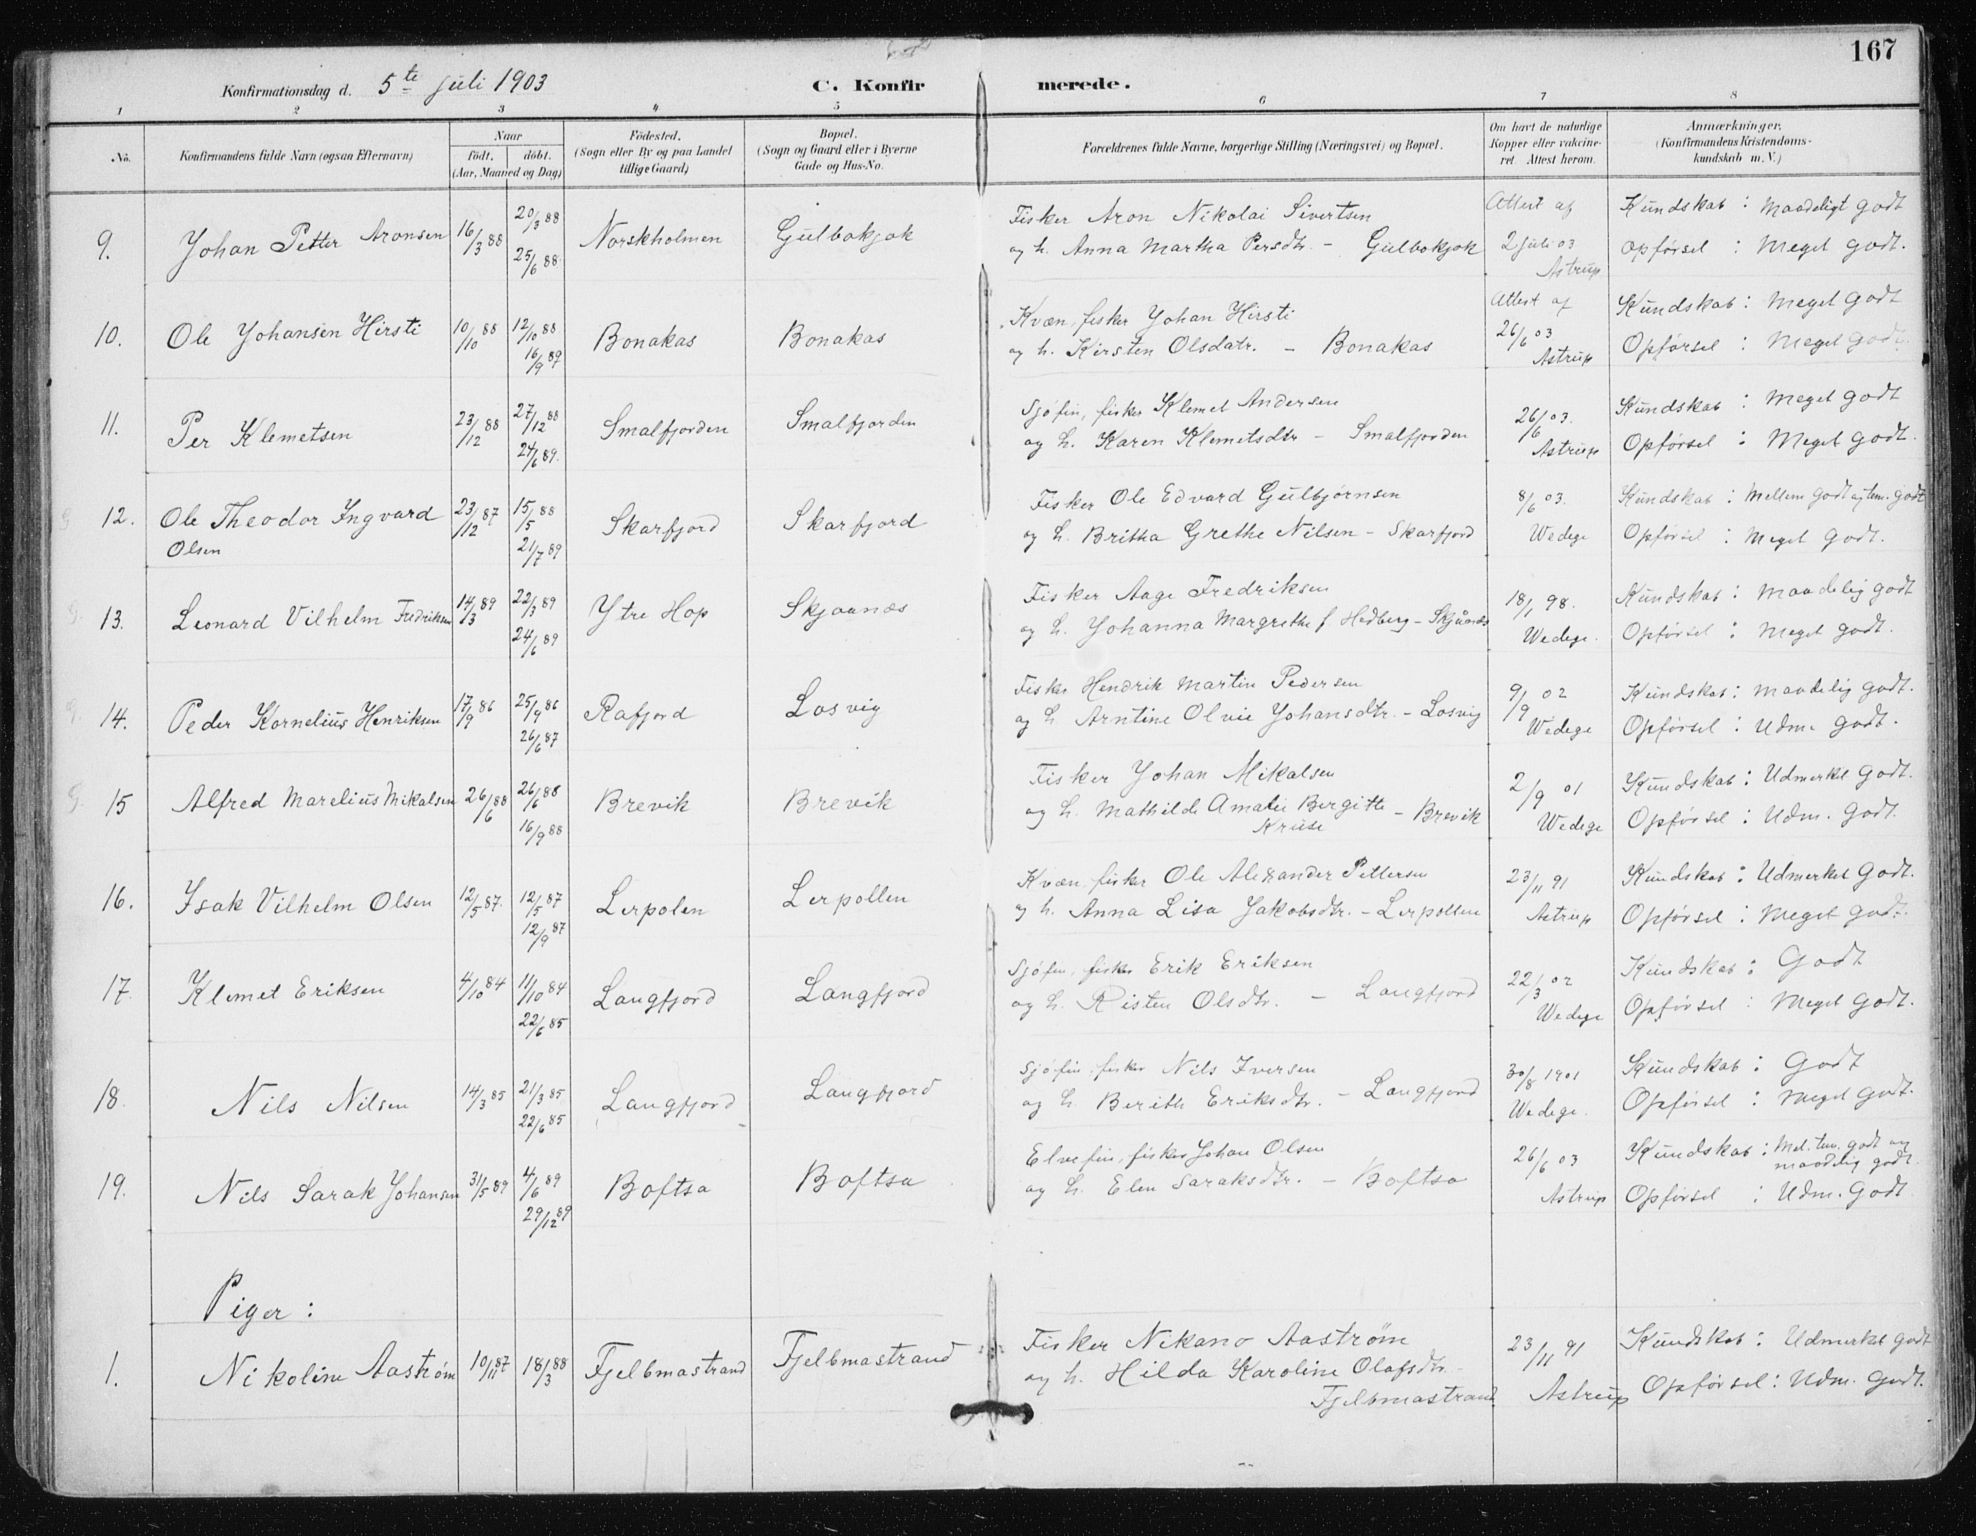 167
Konfirmationsdag d. 5te Juli 1903
C. Konfirmerede.
1 2 3 4 5 6 7 8
No.
Konfirmandens fulde Navn (ogsaa Efternavn)
Naar
født, døbt.
(Aar, Maaned og Dag)
Fødested.
(Sogn eller By og paa Landet
tillige Gaard)
Bopæl.
(Sogn og Gaard eller i Byerne
Gade og Hus-No.
Forældrenes fulde Navne, borgerlige Stilling (Næringsvei) og Bopæl.
Om havt de naturlige
Kopper eller vakcine-
ret Attest herom.
Anmærkninger.
(Konfirmandens Kristendoms-
kundskab m. V.)
9. Johan Petter Aronsen 16/3 88 20/3 88 25/6 88 Norskholmen Gulbokjok
Fisker Aron Nikolai Sivertsen
og h. Anna Martha Persdtr. - Gulbokjok
Attest af
2 juli 03
Astrup
Kundskab : Maadeligt godt
opførsel : Meget godt.
10. Ole Johansen Hirsti 10/10 88 12/10 88 16/9 89 Bonakas Bonakas
Kvæn, fisker Johan Hirsti
og h. Kirsten Olsdatr. - Bonakas
Attest af
26/6 03
Astrup
Kundskab : Meget godt
Opførsel : Meget godt.
11. Per Klemetsen 23/12 88 27/12 88 24/6 89. Smalfjorden Smalfjorden
Sjøfin, fisker Klemet Andersen
og h. Karen Klemetsdtr - Smalfjorden
26/6 03.
Astrup
Kundskab : Meget godt
Opførsel : Meget godt.
12. Ole Theodor Ingvard
Olsen
23/12 87 15/5 88 21/7 89 Skarfjord Skarfjord
Fisker Ole Edvard Gulbjørnsen
og h. Britha Grethe Nilsen - Skarfjord
8/6 03.
Wedege
Kundskab : Mellem godt og tem. godt
Opførsel : Meget godt.
13. Leonard Vilhelm Fredriksen 14/3 89 22/3 89 24/6 89 Ytre Hop Skjaanæs
Fisker Aage Fredriksen
og h. Johanna Margrethe f Hedberg - Skjånæs
18/1 98.
Wedege.
Kundskab : Maadelig godt
Opførsel : Meget godt.
14. Peder Kornelius Henriksen 17/9 86 25/9 86 26/6 87 Rafjord Losvig
Fisker Hendrik Martin Pedersen
og h Arntine Olvie Johansdtr. - Losvig
9/9 02
Wedege
Kundskab : maadelig godt.
Opførsel : Udm. godt.
15 Alfred Marelius Mikalsen 26/6 88 26/6 88 16/9 88 Brevik Brevik
Fisker Johan Mikalsen
og h. Mathilde Amalie Bergitte - Brevik
Kruse
2/9 01
Wedege
Kundskab : Udmerket godt.
Opførsel : Udm. godt.
16. Isak Vilhelm Olsen 12/5 87. 12/5 87 12/9 87 Lerpolen Lerpollen
Kvæn, fisker Ole Alexander Pettersen
og h. Anna Lisa Jakobsdtr. - Lerpollen
23/11 91
Astrup
Kundskab : Udmerket godt.
Opførsel : Meget godt.
17. Klemet Eriksen 4/10 84 11/10 84 22/6 85 Langfjord Langfjord
Sjøfin, fisker Erik Eriksen
og h. Risten Olsdtr. - Langfjord
22/3 02
Wedege
Kundskab : Godt
Opførsel : Meget godt.
18. Nils Nilsen 14/3 85 21/3 85 22/6 85 Langfjord Langfjord
Sjøfin, fisker Nils Iversen
og h. Berith Eriksdtr. - Langfjord
30/8 1901
Wedege.
Kundskab : Godt
Opførsel : Meget godt.
19. Nils Sarak Johansen 31/5 89 4/6 89 29/12 89 Boftsa Boftsa
Elvefin, fisker Johan Olsen
og h. Elen Saraksdtr. - Boftsa
26/6 03
Astrup
Kundskab : Mel. tem. godt og
maadelig godt.
Opførsel : Udm. godt
Piger :
1. Nikoline Aastrøm 10/11 87 18/3 88 Fjelbmastrand Fjelbmastrand
Fisker Nikano Aastrøm
og h. Hilda Karoline Olafsdtr -
Fjelbmastrand
23/11 91
Astrup
Kundskab : Udmerket godt
Opførsel : Udm. godt.